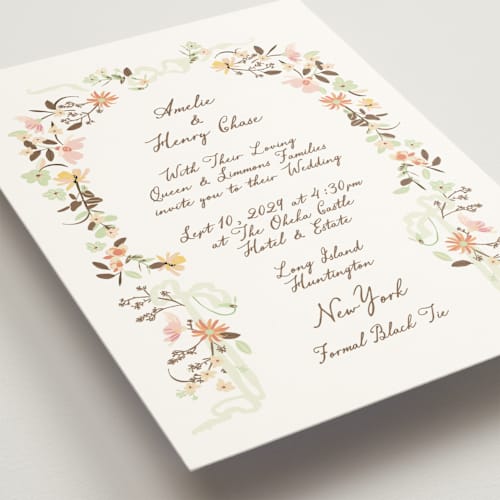 Amelie
&
Henry Chase
With Their Loving
Queen & Simmons Families
invite you to their Wedding
Sept 10, 2029 at 4:30pm
at The Oheka Castle
Hotel & Estate
Long Island
Huntington
New York
Formal Black Tie